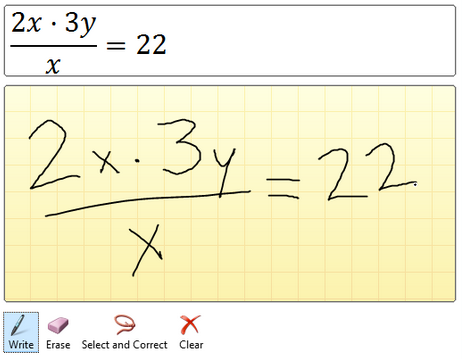 2x · 3y
x
= 22
2x · 3y
x
= 22
Write Erase Select and Correct Clear